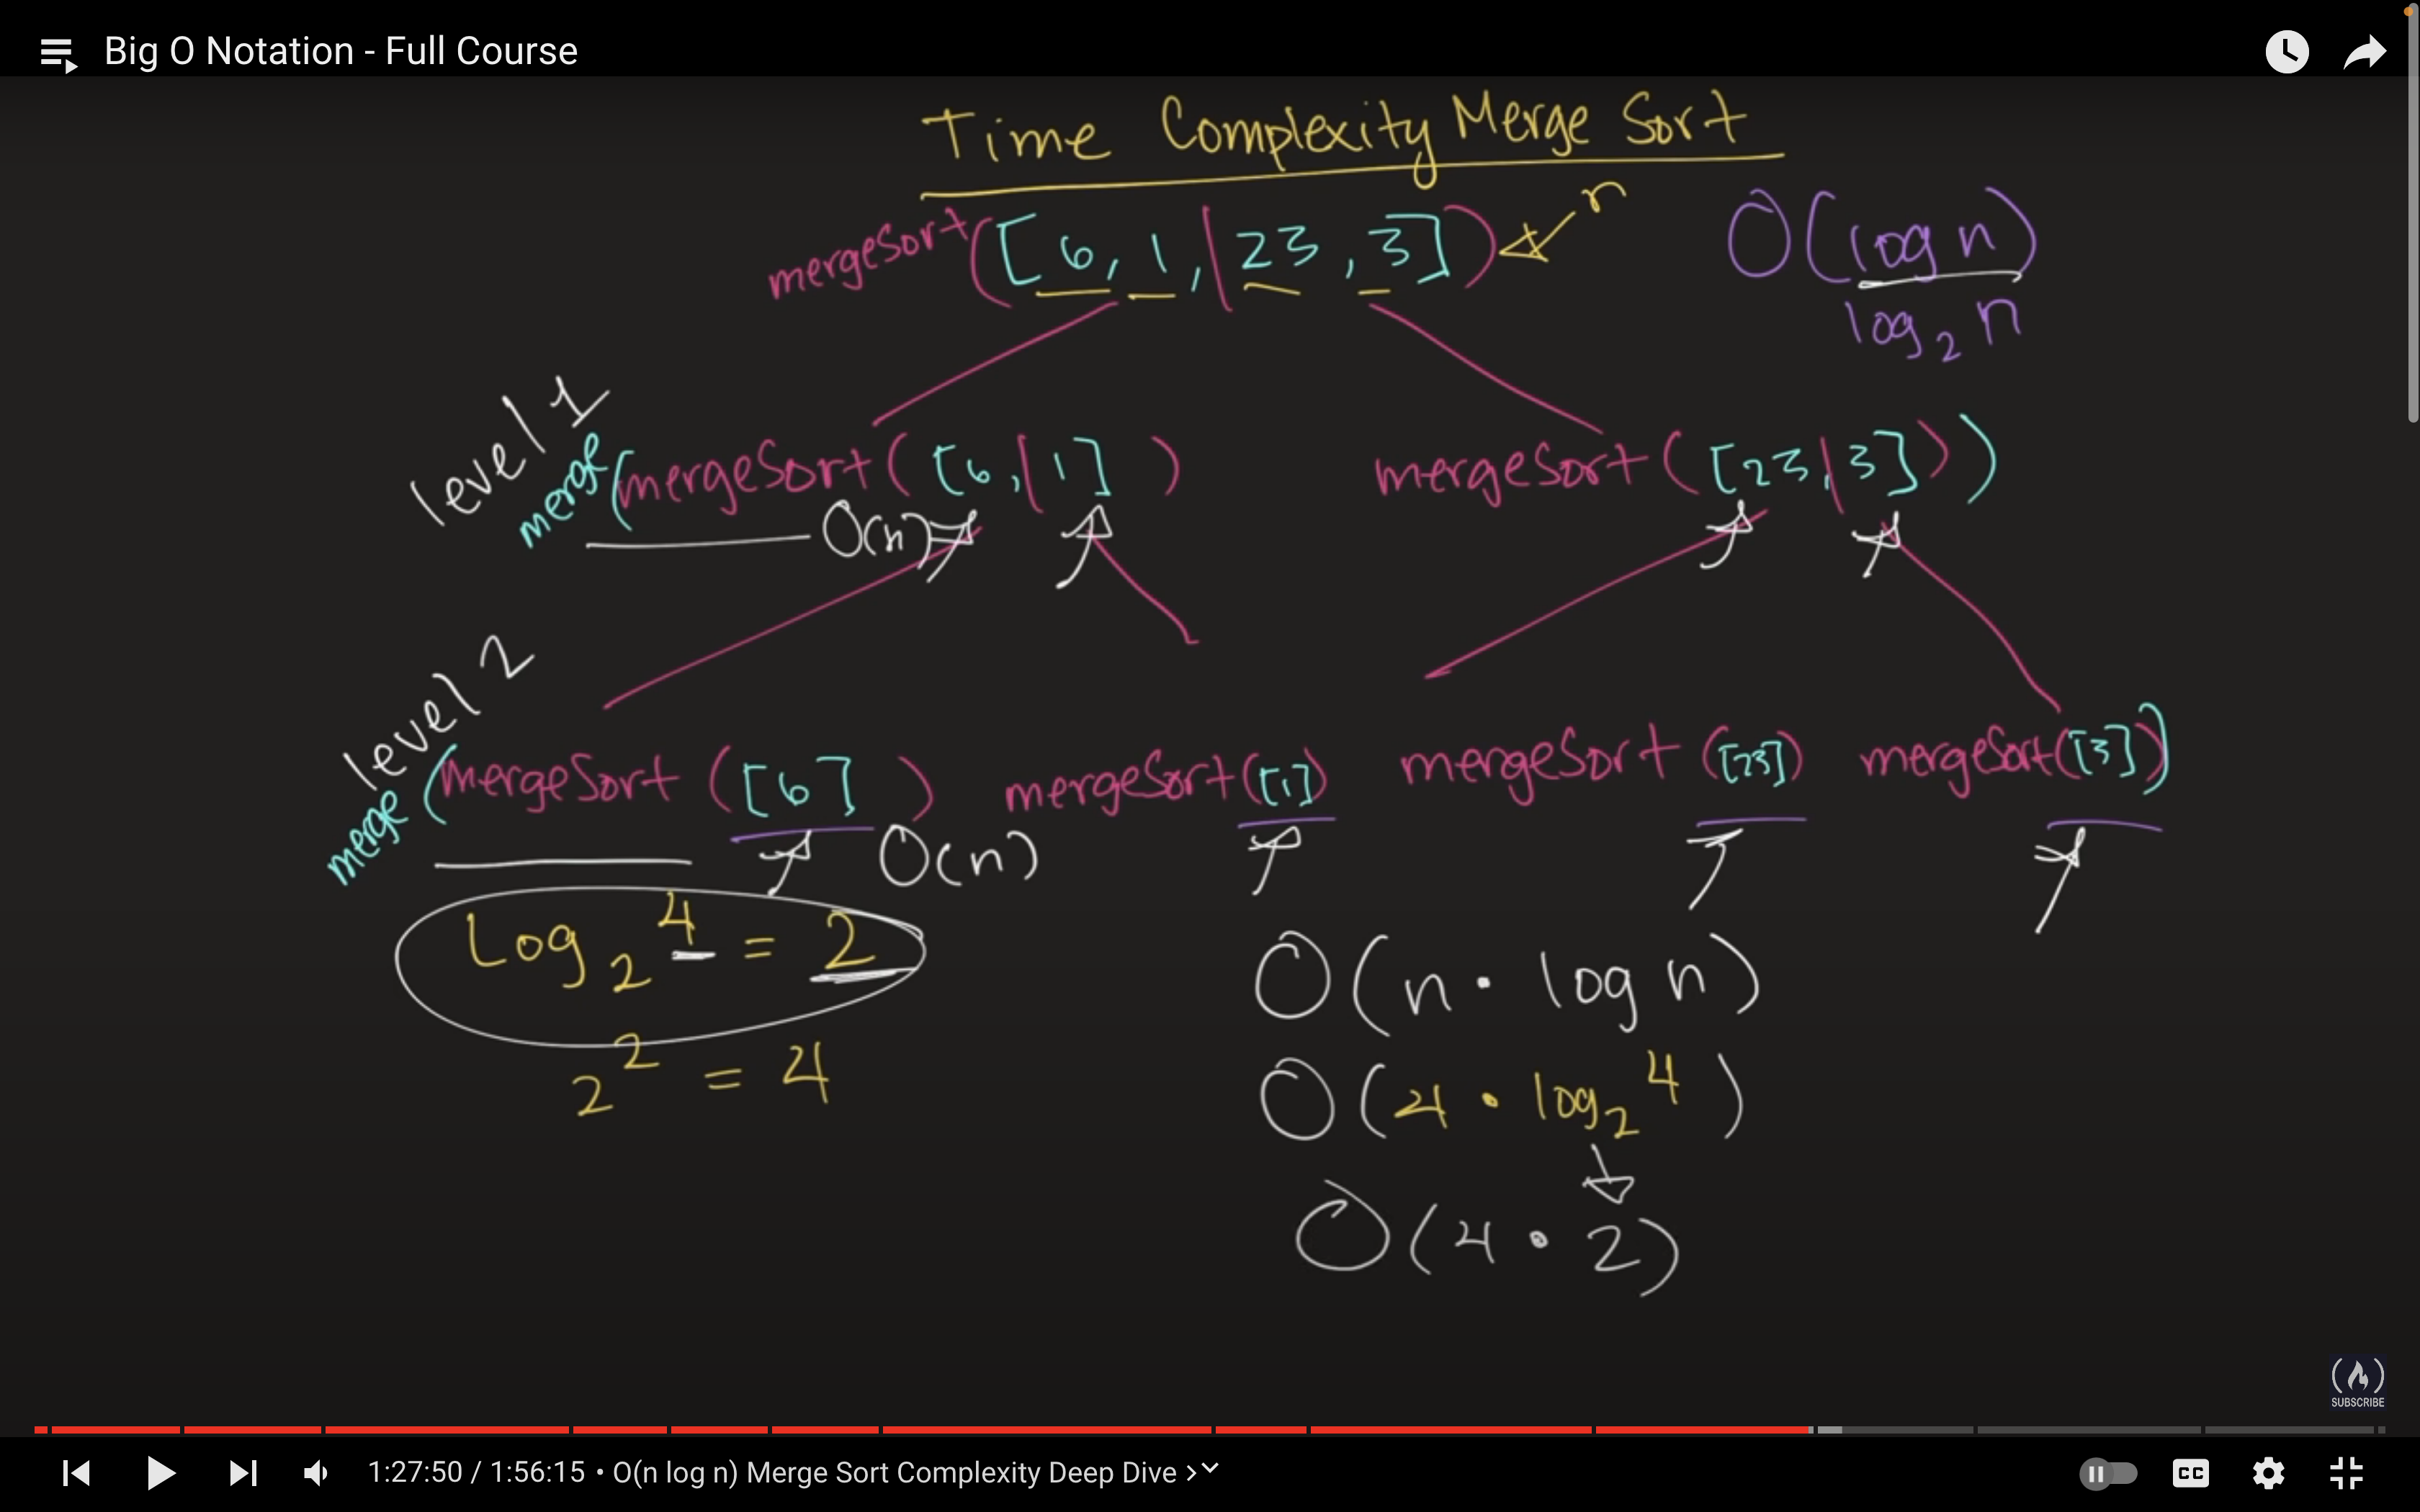 Big O Notation - Full Course
Time Complexity Merge Sort
n
mergeSort([6, 1, | 23, 3])
O(log n)
log₂ n
level 1
merge(mergeSort([6, | 1]) mergeSort([23, | 3]))
O(n)
level 2
merge(mergeSort([6]) mergeSort([1]) mergeSort([23]) mergeSort([3]))
O(n)
Log₂ 4 = 2
2² = 4
O(n · log n)
O(4 · log₂ 4)
O(4 · 2)
SUBSCRIBE
1:27:50 / 1:56:15 • O(n log n) Merge Sort Complexity Deep Dive >
CC